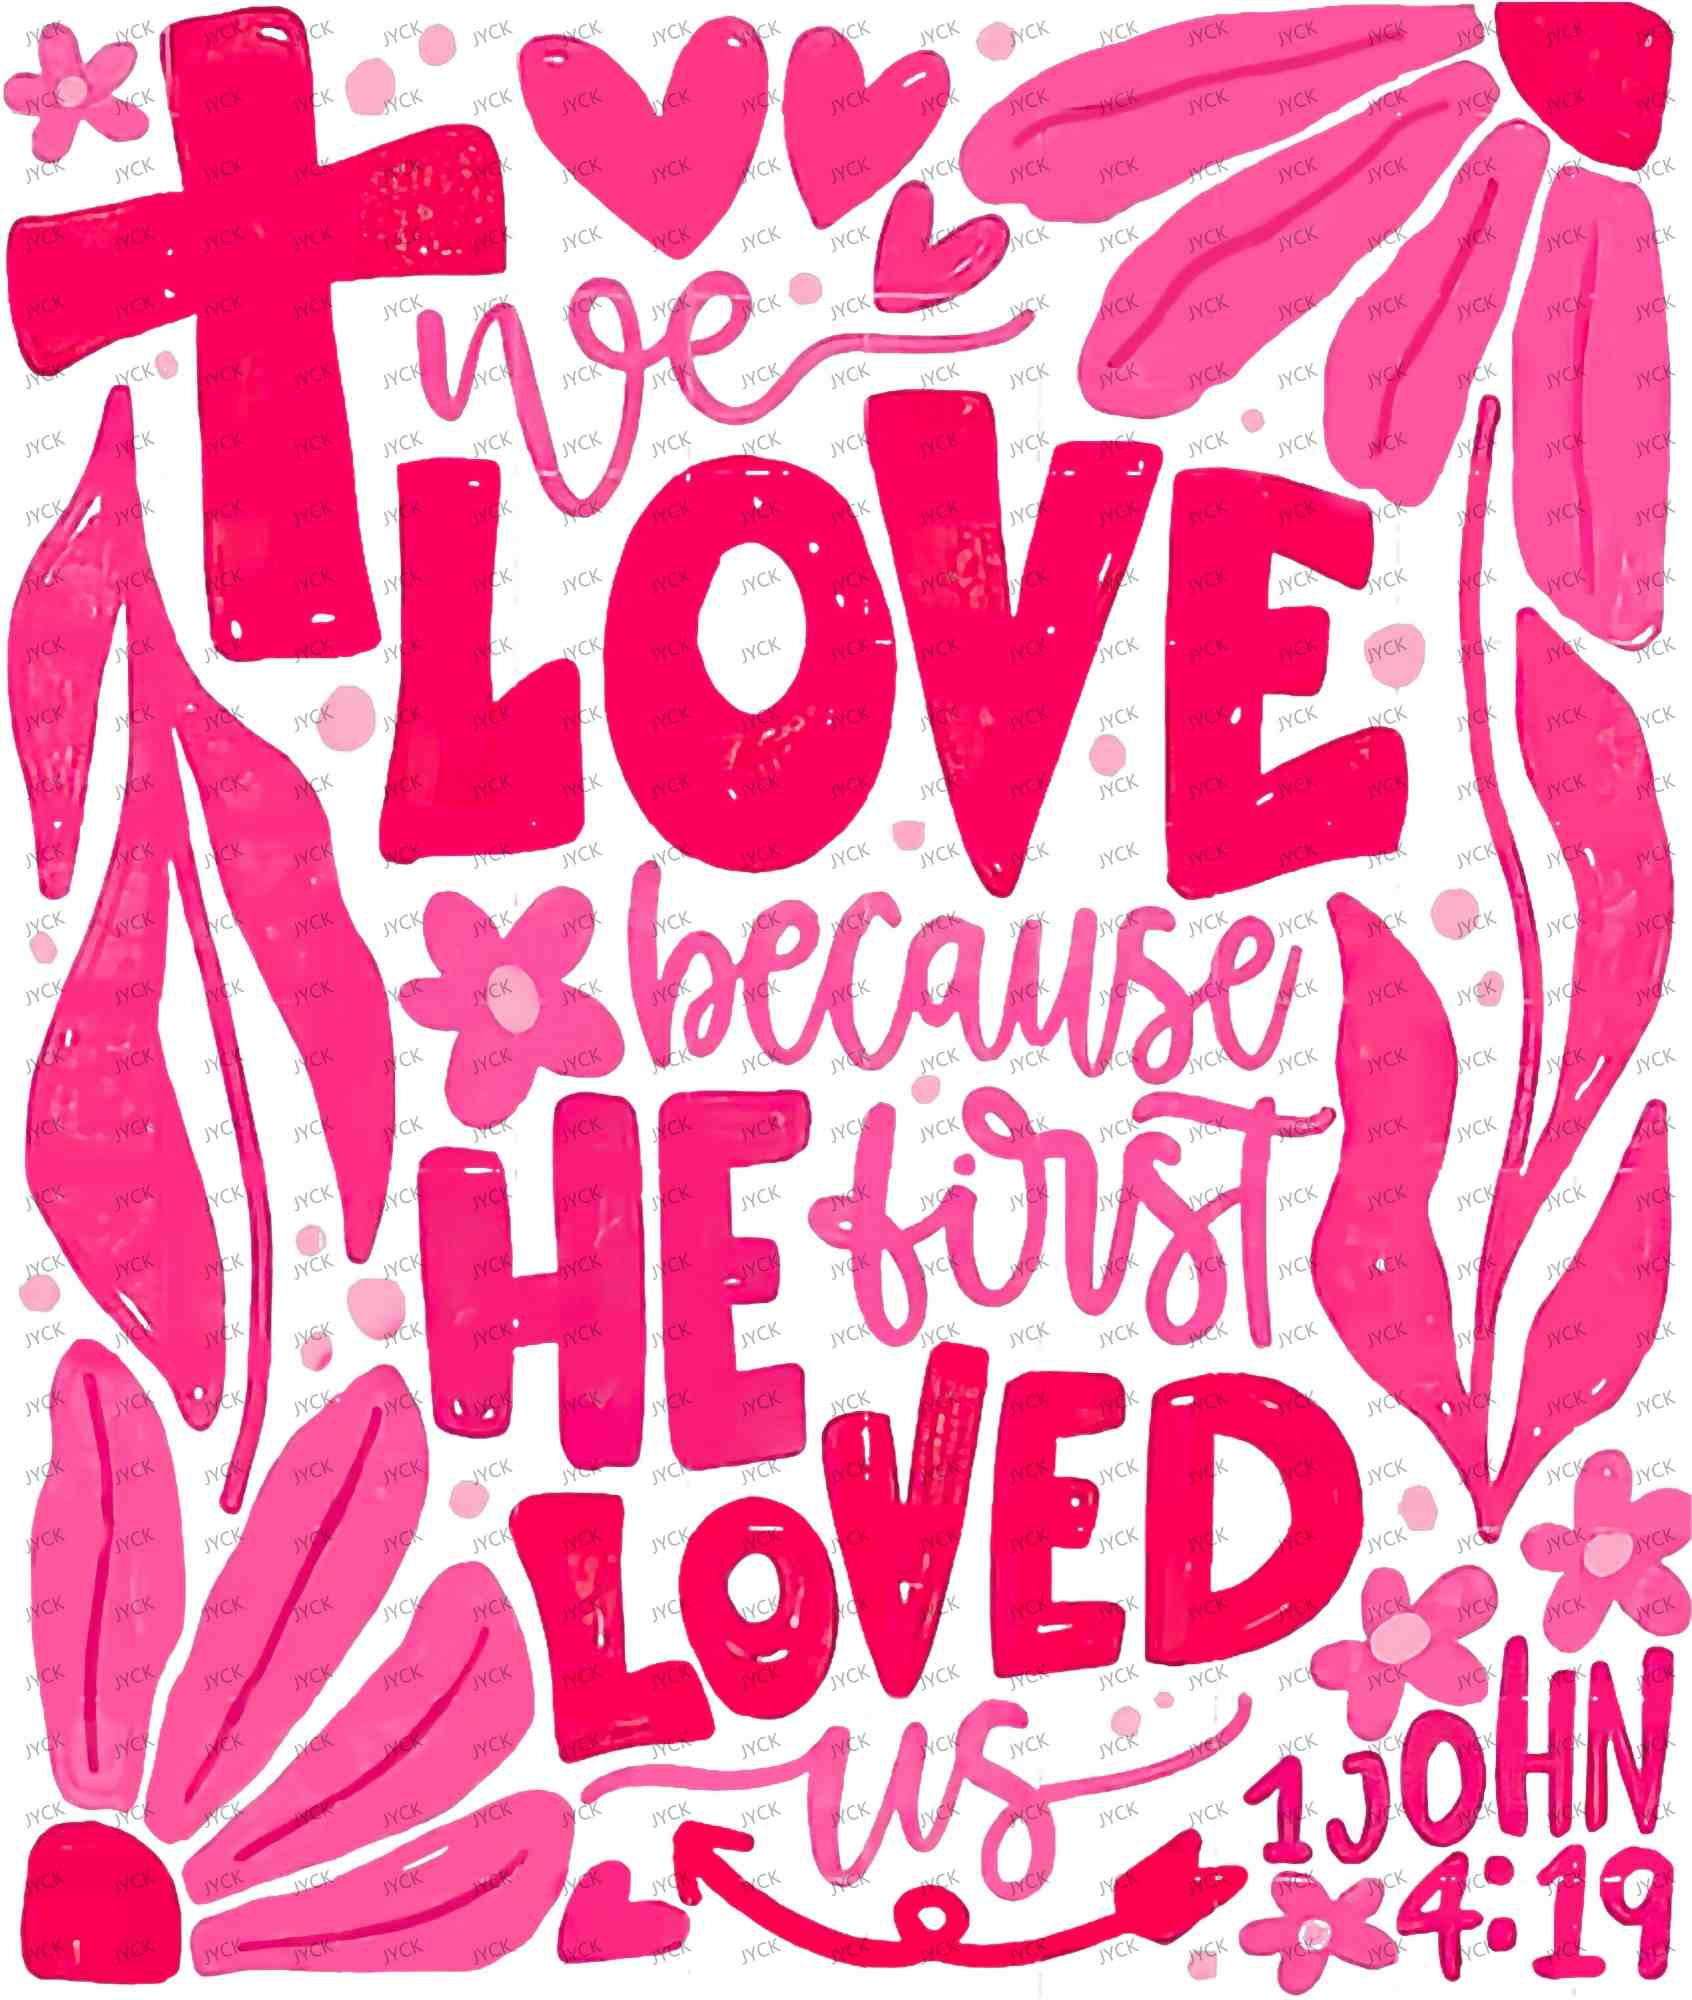 we
LOVE
because
HE first
LOVED
us
1 JOHN
4:19
JYCK